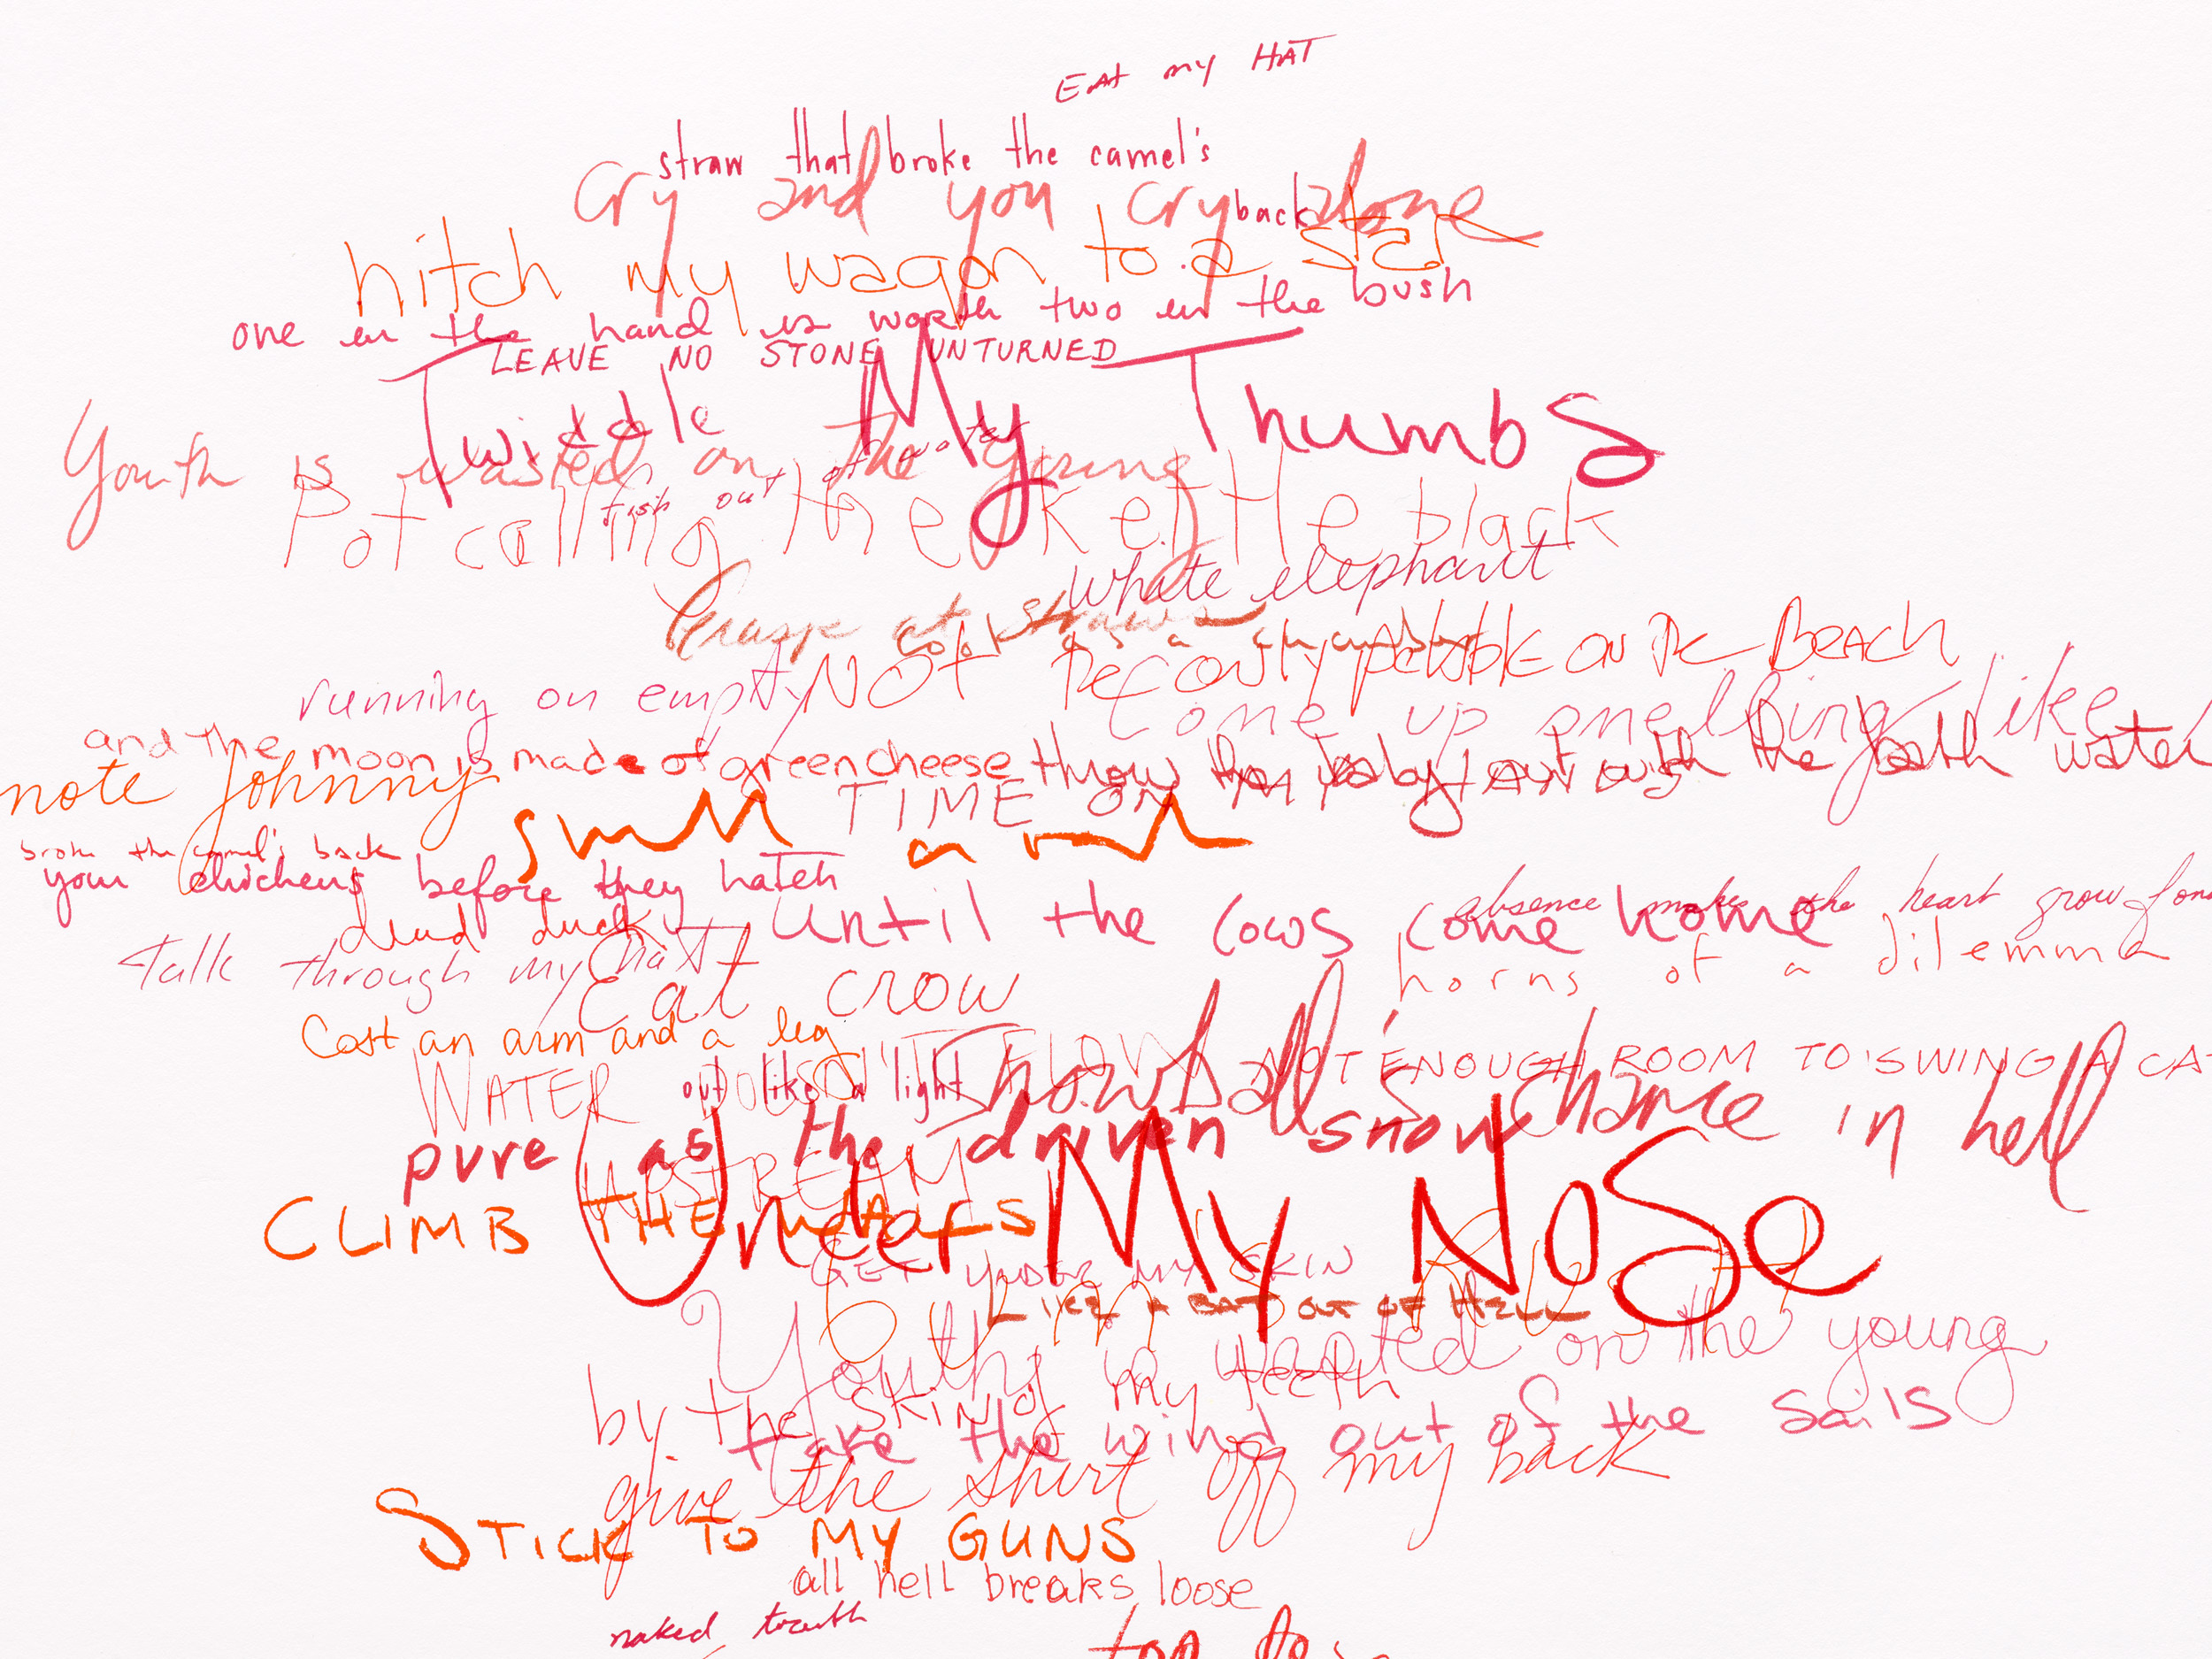 EAT my HAT
straw that broke the camel's
back
Cry and you cry alone
hitch my wagon to a star
one in the hand is worth two in the bush
LEAVE NO STONE UNTURNED
Twiddle My Thumbs
Youth is wasted on the young
fish out of water
Pot calling the kettle black
white elephant
Grasp at straws
cool as a cucumber
NOT THE ONLY PEBBLE ON THE BEACH
running on empty
Come up smelling like
and the moon is made of green cheese
throw the baby out with the bath water
note Johnny
TIME ON MY
smell a rat
broke the camel's back
your chickens before they hatch
absence makes the heart grow
dead duck
until the cows come home
talk through my hat
horns of a dilemma
Eat crow
Cost an arm and a leg
NOT ENOUGH ROOM TO SWING A CA
WATER DOESN'T FLOW
out like a light
snowball's chance in hell
pure as the driven snow
UPSTREAM
CLIMB THE WALLS
Under My Nose
GET UNDER MY SKIN
LIKE A BAT OUT OF HELL
Youth is wasted on the young
by the skin of my teeth
take the wind out of the sails
give the shirt off my back
STICK TO MY GUNS
all hell breaks loose
naked truth